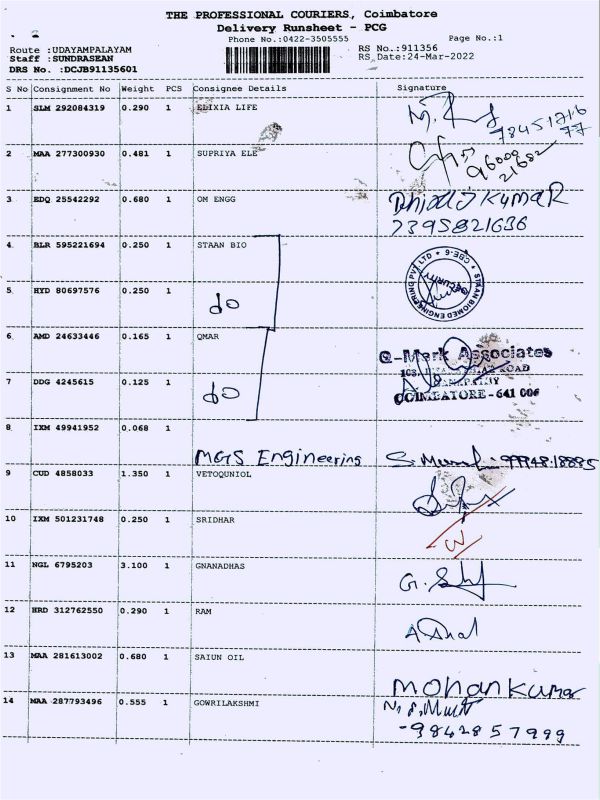 THE PROFESSIONAL COURIERS, Coimbatore
Delivery Runsheet - PCG
Phone No.:0422-3505555
Page No.:1
Route :UDAYAMPALAYAM
RS No.:911356
Staff :SUNDRASEAN
RS Date:24-Mar-2022
DRS No. :DCJB91135601
S No Consignment No Weight PCS Consignee Details Signature
1 SLM 292084319 0.290 1 ELIXIA LIFE
2 MAA 277300930 0.481 1 SUPRIYA ELE
96000
21682
3 EDQ 25542292 0.680 1 OM ENGG
Kumar
7395821636
4 BLR 595221694 0.250 1 STAAN BIO
STAAN BIOMED ENGINEERING PVT LTD ★ CBE-6 ★
SECURITY
5 HYD 80697576 0.250 1 do
6 AMD 24633446 0.165 1 QMAR
Q-Mark Associates
ROAD
7 DDG 4245615 0.125 1 do
COIMBATORE - 641 006
8 IXM 49941952 0.068 1
MGS Engineering
9 CUD 4858033 1.350 1 VETOQUNIOL
10 IXM 501231748 0.250 1 SRIDHAR
11 NGL 6795203 3.100 1 GNANADHAS
12 HRD 312762550 0.290 1 RAM
13 MAA 281613002 0.680 1 SAIUN OIL
Mohankumar
14 MAA 287793496 0.555 1 GOWRILAKSHMI
-9842857999